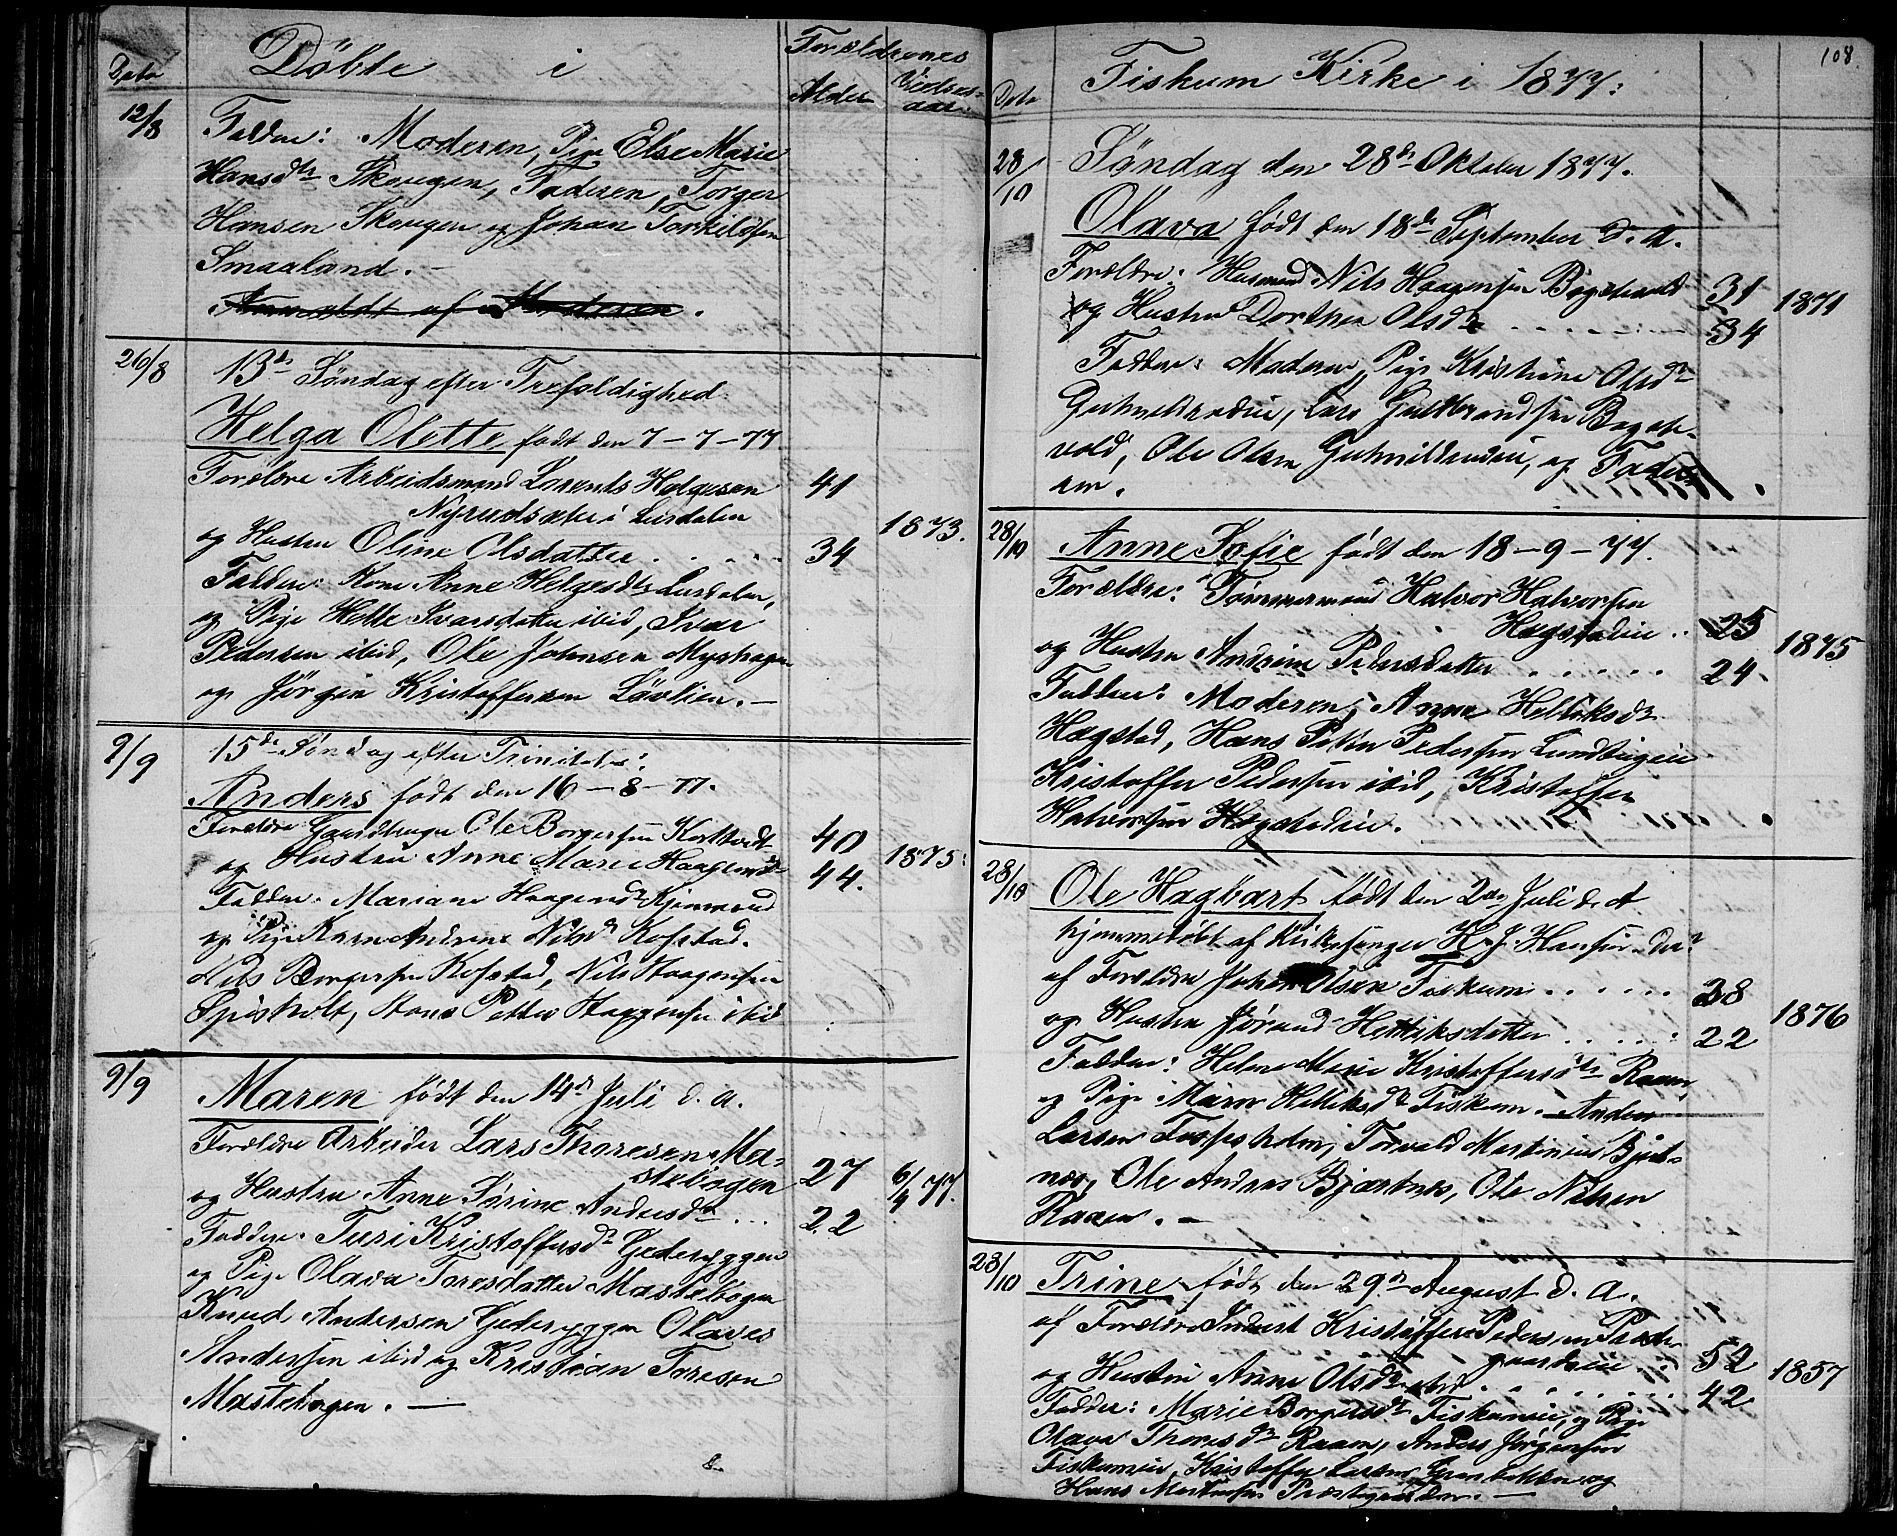 Døbte i
Forældrenes
Dato
Alder
Vielses-
aar.
12/8
Faddere: Moderen, Pige Else Marie
Hansdtr Skougen, Faderen, Torger
Hansen Skougen og Johan Torkildsen
Smaaland. —
Anmeldt af Moderen.
26/8
13de Søndag efter Trefoldighed.
Helga Olette født den 7-7-77
Forældre Arbeidsmand Lorents Helgesen 41
Nyrudsæter i Lurdalen
og Hustru Oline Olsdatter. 34 1873.
Faddere: Kone Anne Helgesdtr Lurdalen,
og Pige Helte Ivarsdatter ibid, Ivar
Pedersen ibid, Ole Johnsen Myrhagen
og Jörgen Kristoffersen Lövlien. —
9/9
15de Søndag efter Trinitatis:
Anders født den 16-8-77.
Forældre Gaardbruger Ole Borgersen 40
og Hustru Anne Marie Haagensd 44. 1875:
Faddere: Mariane Haagensdr
og Pige Karen Andrine Nilsdr Kofstad.
Nils Borgersen Kofstad, Nils Haagensen
Spisholt, Hans Petter Haagensen ibid
9/9
Maren født den 14de Juli d. a.
Forældre Arbeider Lars Thoresen Ma-
stebogen 27
og Hustru Anne Sørine Andersdtr ... 22 6/4 77.
Faddere: Turi Kristoffersdr Gederyggen
og Pige Olava Toresdatter Mastebogen
Knud Anderssen Gederyggen Olaves
Andersen ibid og Kristian Toresen
Mastebogen. —
108.
Dato
Fiskum Kirke i 1877:
28/10
Søndag den 28de Oktober 1877.
Olava født den 18de September d. a.
Forældre: Husmand Nils Haagensen 31
og Hustru Dorthea Olsdtr 34 1871
Faddere: Moderen, Pige Kristine Olsdtr
Guhnildrudeie, Lars Guldbrandsen Bøgeh-
vold, Ole Olsen Guhnildrudeie, og Fader-
en.
28/10
Anne Sofie født den 18-9-77.
Forældre: Tømmermand Halvor Halvorsen
Hægstadeie .. 25
og Hustru Andrine Pedersdatter 24. 1875
Faddere: Moderen, Anne Helliksdtr
Hægstad, Hans Peter Pedersen
Kristoffer Pedersen ibid, Kristoffer
Halvorsen Hægstadeie.
28/10
Ole Hagbart født den 2den Juli d. A
hjemmedøbt af Kirkesanger H. J. Hansen
af Forældre Johan Olsen Fiskum 28
og Hustru Jørand Helliksdatter 22 1876
Faddere: Helene Marie Kristoffersdtr Raaen,
og Pige Maren Helliksdtr Fiskum. Anders
Larsen, Torvald Martinius Bjert-
næs, Ole Andreas Bjærtnes, Ole Nilsen
Raaen. —
28/10
Trine født den 29de August d. A.
af Forældre Inderst Kristoffer Pedersen Præste-
gaardseie 52
og Hustru Anne Olsdtr 42 1857
Faddere: Marie Borgersdtr Fiskumeie, og Pige
Olava Thoresdr Raaen, Anders Jørgensen
Fiskumeie, Kristoffer Larsen Grønbakken og
Hans Mortensen Præstegaarden. —